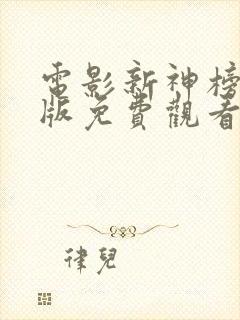 電影新神榜
版免費觀看
律兒